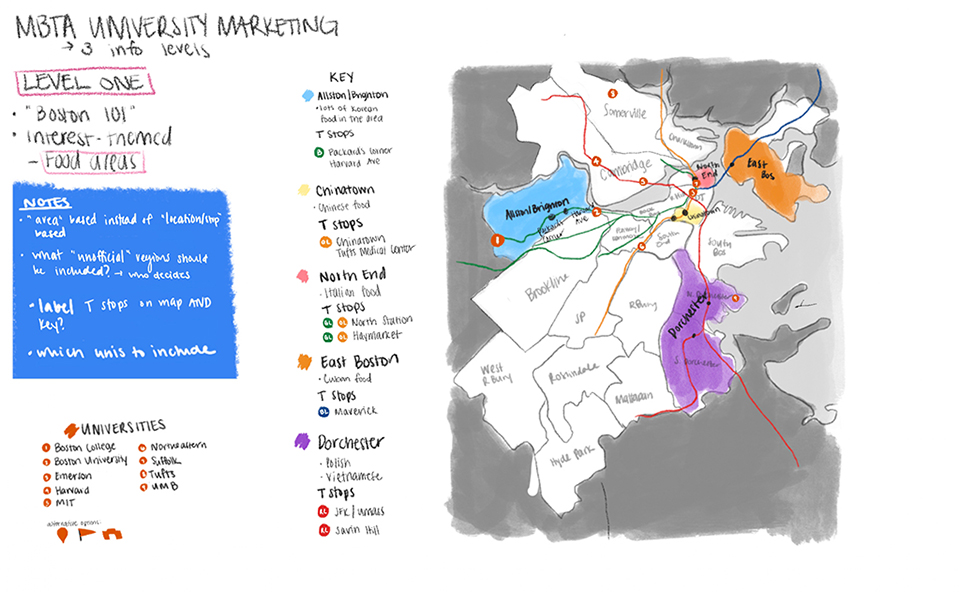 MBTA UNIVERSITY MARKETING
→ 3 info levels
LEVEL ONE
• "Boston 101"
• interest-themed
- Food areas
NOTES
• "area" based instead of "location/stop" based
• what "unofficial" regions should be included? → who decides
• label T stops on map AND key?
• which unis to include
UNIVERSITIES
1 Boston College
2 Boston University
3 Emerson
4 Harvard
5 MIT
6 Northeastern
7 Suffolk
8 Tufts
9 UMB
alternative options:
KEY
Allston/Brighton
• lots of Korean
food in the area
T Stops
B Packard's Corner
Harvard Ave
Chinatown
• Chinese food
T stops
OL Chinatown
Tufts Medical Center
North End
• Italian food
T Stops
GL OL North Station
GL OL Haymarket
East Boston
• Cuban food
T Stops
BL Maverick
Dorchester
• Polish
• Vietnamese
T stops
RL JFK/UMass
RL Savin Hill
Somerville
Charlestown
Cambridge
North End
East Bos
Allston/Brighton
Packard's Corner
Harvard Ave
Chinatown
South End
South Bos
Brookline
JP
R.Bury
Dorchester
N. Dorchester
S. Dorchester
West R.Bury
Roslindale
Mattapan
Hyde Park